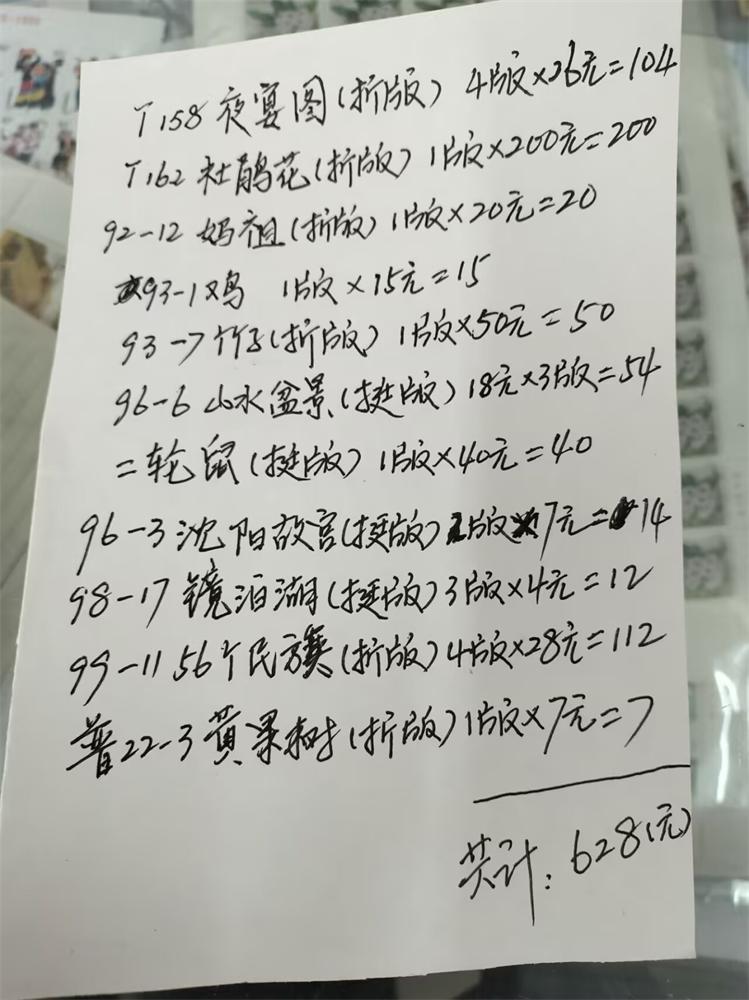 T158 夜宴图(折版) 4版×26元=104
T162 杜鹃花(折版) 1版×200元=200
92-12 妈祖(折版) 1版×20元=20
93-1 鸡 1版×15元=15
93-7 竹子(折版) 1版×50元=50
96-6 山水盆景(挺版) 18元×3版=54
二轮鼠(挺版) 1版×40元=40
96-3 沈阳故宫(挺版) 2版×7元=14
98-17 镜泊湖(挺版) 3版×4元=12
99-11 56个民族(折版) 4版×28元=112
普22-3 黄果树(折版) 1版×7元=7
共计:628(元)